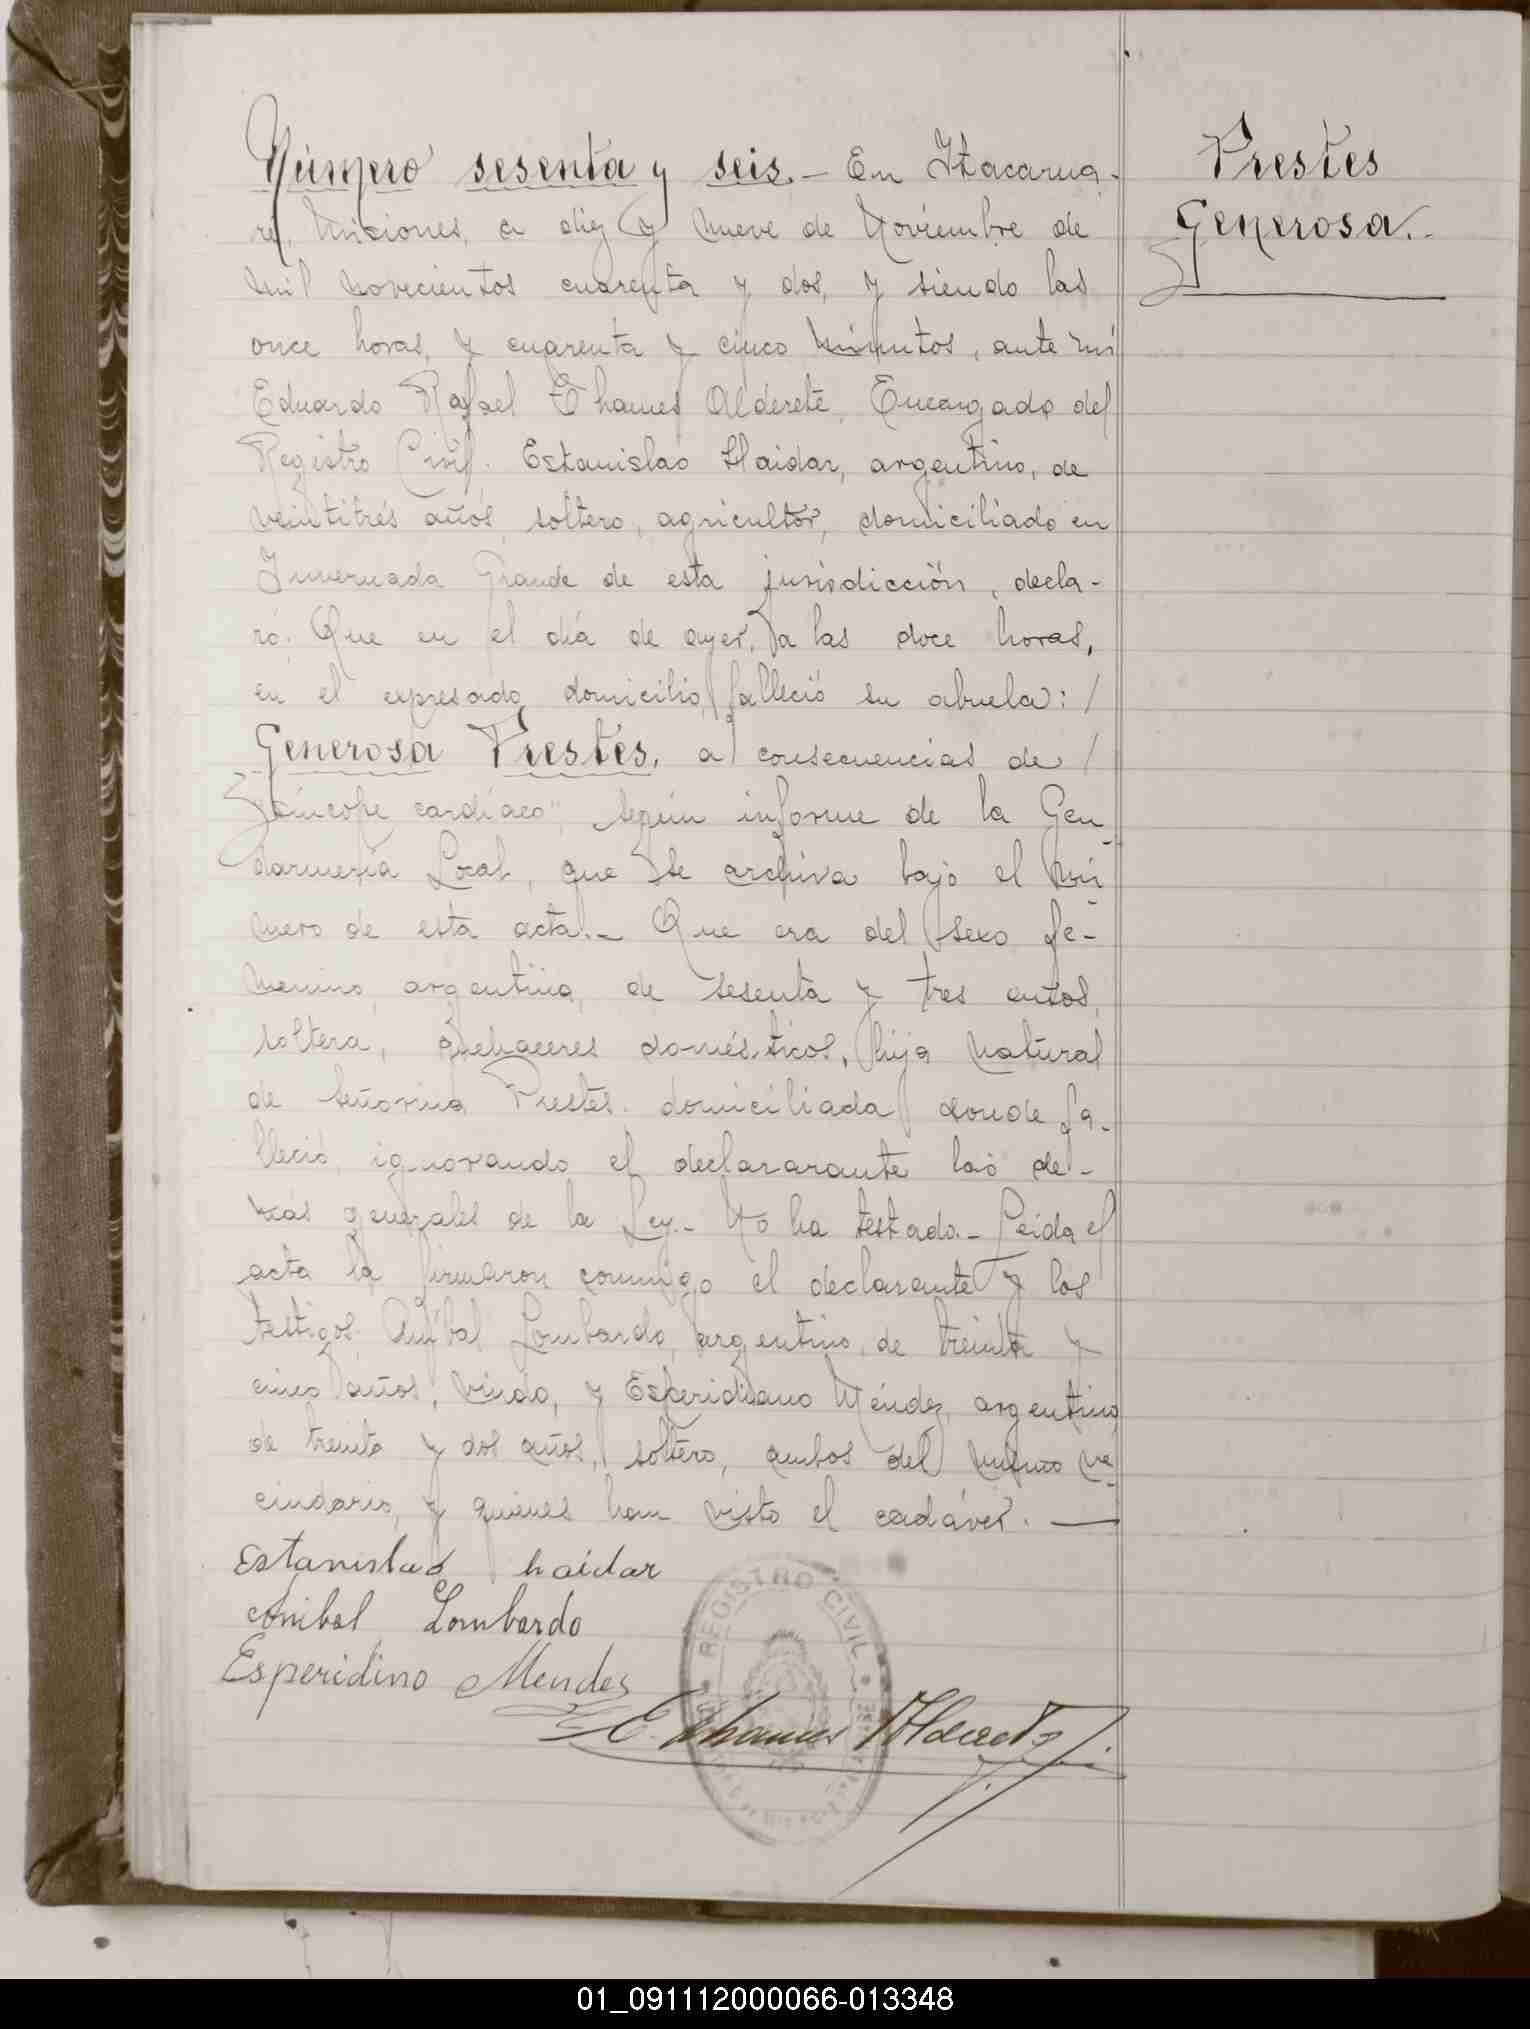 Número sesenta y seis.- En Itacarua-
ré, Misiones, a diez y nueve de Noviembre de
mil novecientos cuarenta y dos, y siendo las
once horas, y cuarenta y cinco minutos, ante mí
Eduardo Rafael Thames Alderete, Encargado del
Registro Civil. Estanislao Haidar, argentino, de
veintitrés años, soltero, agricultor, domiciliado en
Invernada Grande de esta jurisdicción, decla-
ró: Que en el día de ayer, a las doce horas,
en el expresado domicilio, falleció su abuela: /
Generosa Prestes, a consecuencias de /
"síncope cardíaco", según informe de la Gen-
darmería Local, que se archiva bajo el nú-
mero de esta acta.- Que era del sexo fe-
menino, argentina, de sesenta y tres años,
soltera, quehaceres domésticos, hija natural
de Señorina Prestes, domiciliada donde fa-
lleció, ignorando el declararante las de-
más generales de la Ley.- No ha testado.- Leída el
acta la firmaron conmigo el declarante y los
testigos: Aníbal Lombardo, argentino, de treinta y
cinco años, viudo, y Esperidiano Méndez, argentino
de treinta y dos años, soltero, ambos del mismo ve-
cindario, y quienes han visto el cadáver. —
Estanislao haidar
Anibal Lombardo
Esperidino Mendes
E. Thames Alderete
REGISTRO CIVIL
Prestes
Generosa.-
01_091112000066-013348